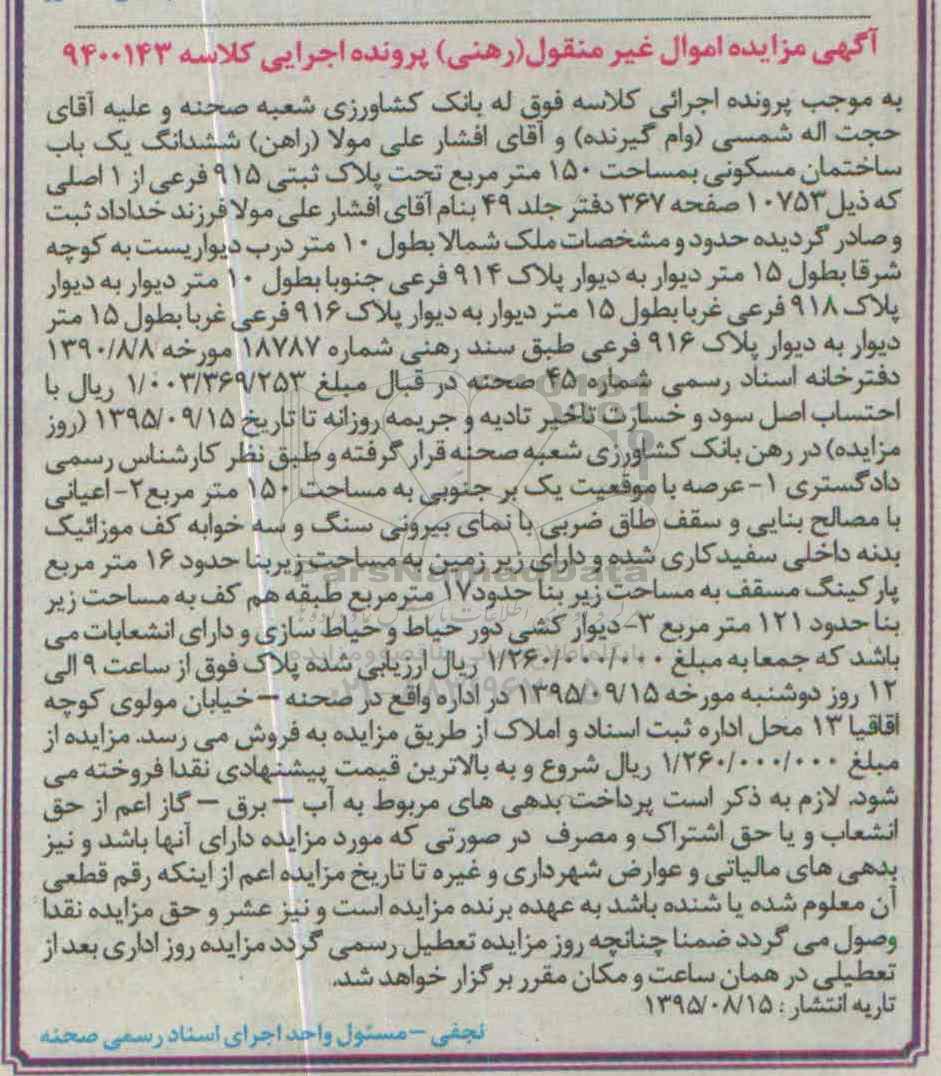 آگهی مزایده اموال غیر منقول(رهنی) پرونده اجرایی کلاسه ۹۴۰۰۱۴۳
به موجب پرونده اجرائی کلاسه فوق له بانک کشاورزی شعبه صحنه و علیه آقای
حجت اله شمسی (وام گیرنده) و آقای افشار علی مولا (راهن) ششدانگ یک باب
ساختمان مسکونی بمساحت ۱۵۰ متر مربع تحت پلاک ثبتی ۹۱۵ فرعی از ۱ اصلی
که ذیل ۱۰۷۵۳ صفحه ۳۶۷ دفتر جلد ۴۹ بنام آقای افشار علی مولا فرزند خداداد ثبت
و صادر گردیده حدود و مشخصات ملک شمالا بطول ۱۰ متر درب دیواریست به کوچه
شرقا بطول ۱۵ متر دیوار به دیوار پلاک ۹۱۴ فرعی جنوبا بطول ۱۰ متر دیوار به دیوار
پلاک ۹۱۸ فرعی غربا بطول ۱۵ متر دیوار به دیوار پلاک ۹۱۶ فرعی غربا بطول ۱۵ متر
دیوار به دیوار پلاک ۹۱۶ فرعی طبق سند رهنی شماره ۱۸۷۸۷ مورخه ۱۳۹۰/۸/۸
دفترخانه اسناد رسمی شماره ۴۵ صحنه در قبال مبلغ ۱/۰۰۳/۳۶۹/۲۵۳ ریال با
احتساب اصل سود و خسارت تاخیر تادیه و جریمه روزانه تا تاریخ ۱۳۹۵/۰۹/۱۵ (روز
مزایده) در رهن بانک کشاورزی شعبه صحنه قرار گرفته و طبق نظر کارشناس رسمی
دادگستری ۱- عرصه با موقعیت یک بر جنوبی به مساحت ۱۵۰ متر مربع ۲- اعیانی
با مصالح بنایی و سقف طاق ضربی با نمای بیرونی سنگ و سه خوابه کف موزائیک
بدنه داخلی سفیدکاری شده و دارای زیر زمین به مساحت زیربنا حدود ۱۶ متر مربع
پارکینگ مسقف به مساحت زیر بنا حدود ۱۷ مترمربع طبقه هم کف به مساحت زیر
بنا حدود ۱۲۱ متر مربع ۳- دیوار کشی دور حیاط و حیاط سازی و دارای انشعابات می
باشد که جمعا به مبلغ ۱/۲۶۰/۰۰۰/۰۰۰ ریال ارزیابی شده پلاک فوق از ساعت ۹ الی
۱۲ روز دوشنبه مورخه ۱۳۹۵/۰۹/۱۵ در اداره واقع در صحنه – خیابان مولوی کوچه
اقاقیا ۱۳ محل اداره ثبت اسناد و املاک از طریق مزایده به فروش می رسد. مزایده از
مبلغ ۱/۲۶۰/۰۰۰/۰۰۰ ریال شروع و به بالاترین قیمت پیشنهادی نقدا فروخته می
شود. لازم به ذکر است پرداخت بدهی های مربوط به آب – برق – گاز اعم از حق
انشعاب و یا حق اشتراک و مصرف در صورتی که مورد مزایده دارای آنها باشد و نیز
بدهی های مالیاتی و عوارض شهرداری و غیره تا تاریخ مزایده اعم از اینکه رقم قطعی
آن معلوم شده یا شنده باشد به عهده برنده مزایده است و نیز عشر و حق مزایده نقدا
وصول می گردد ضمنا چنانچه روز مزایده تعطیل رسمی گردد مزایده روز اداری بعد از
تعطیلی در همان ساعت و مکان مقرر برگزار خواهد شد.
تاریه انتشار : ۱۳۹۵/۰۸/۱۵
نجفی – مسئول واحد اجرای اسناد رسمی صحنه
ParsNamadData